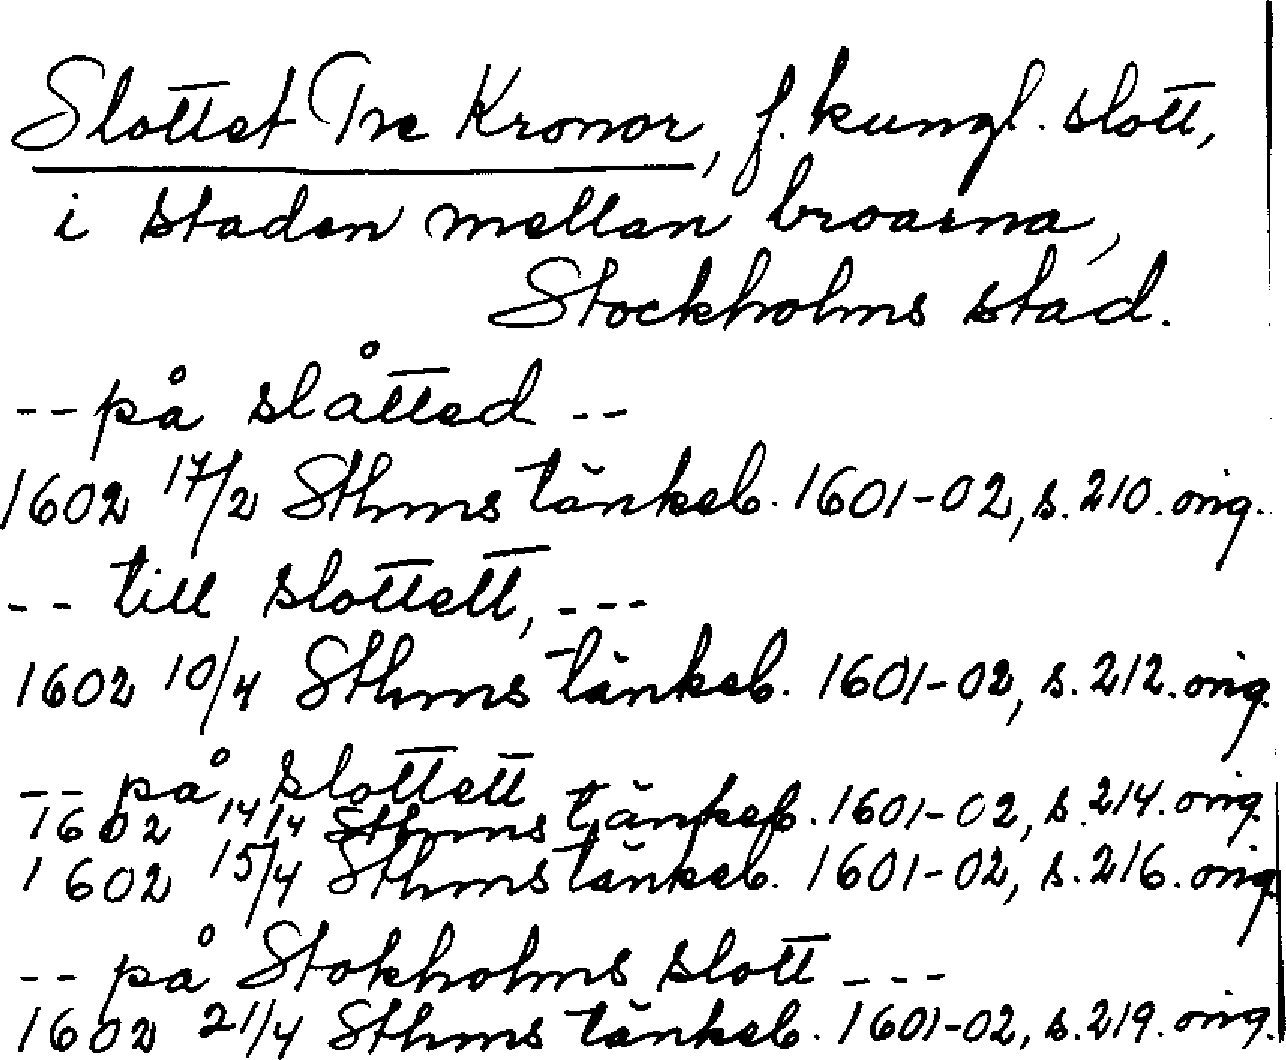 Slottet Tre Kronor, f. kungl. slott,
i staden mellan broarna,
Stockholms stad.
-- på slåtted --
1602 17/2 Sthms tänkeb. 1601-02, s. 210. orig.
-- till slottett, ---
1602 10/4 Sthms tänkeb. 1601-02, s. 212. orig.
-- på slottett
1602 14/4 Sthms tänkeb. 1601-02, s. 214. orig.
1602 15/4 Sthms tänkeb. 1601-02, s. 216. orig
-- på Stokholms slott ---
1602 21/4 Sthms tänkeb. 1601-02, s. 219. orig.